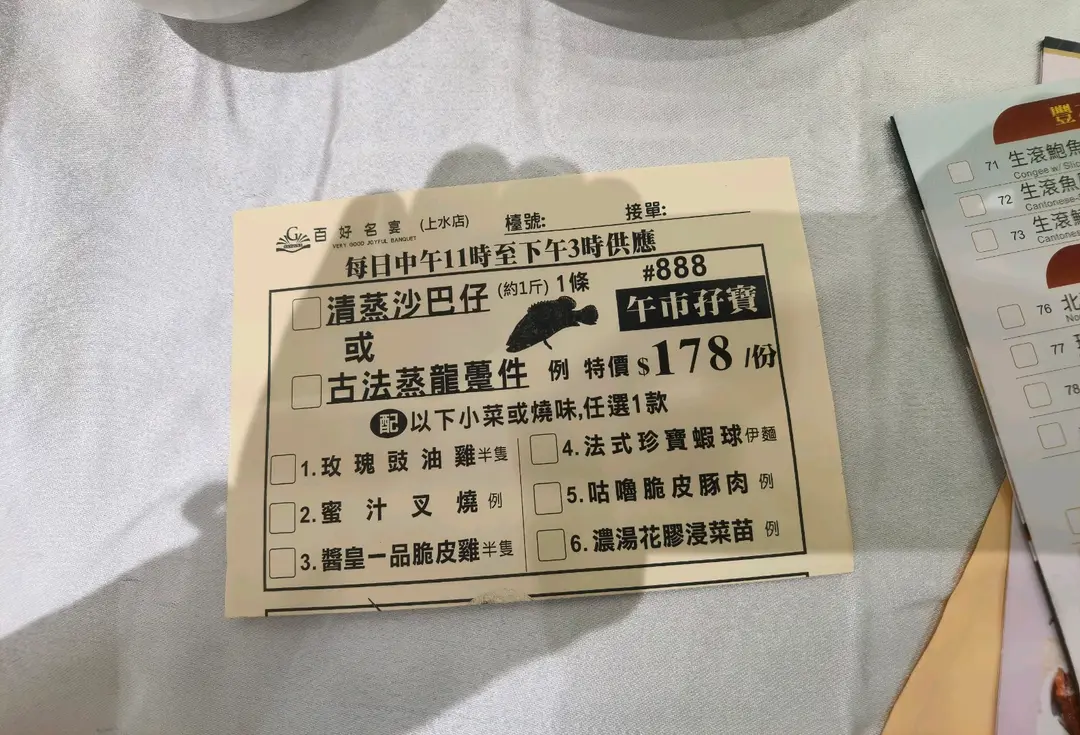 百好名宴 (上水店) 檯號: 接單:
VERY GOOD JOYFUL BANQUET
每日中午11時至下午3時供應
清蒸沙巴仔 (約1斤) 1條 #888
或 午市孖寶
古法蒸龍躉件 例 特價 $178 /份
配 以下小菜或燒味,任選1款
1. 玫瑰豉油雞 半隻
2. 蜜汁叉燒 例
3. 醬皇一品脆皮雞 半隻
4. 法式珍寶蝦球 伊麵
5. 咕嚕脆皮豚肉 例
6. 濃湯花膠浸菜苗 例
71 生滾鮑魚
Congee w/
72 生滾魚
Cantonese-
73 生滾
Cantones
76 北
77
78